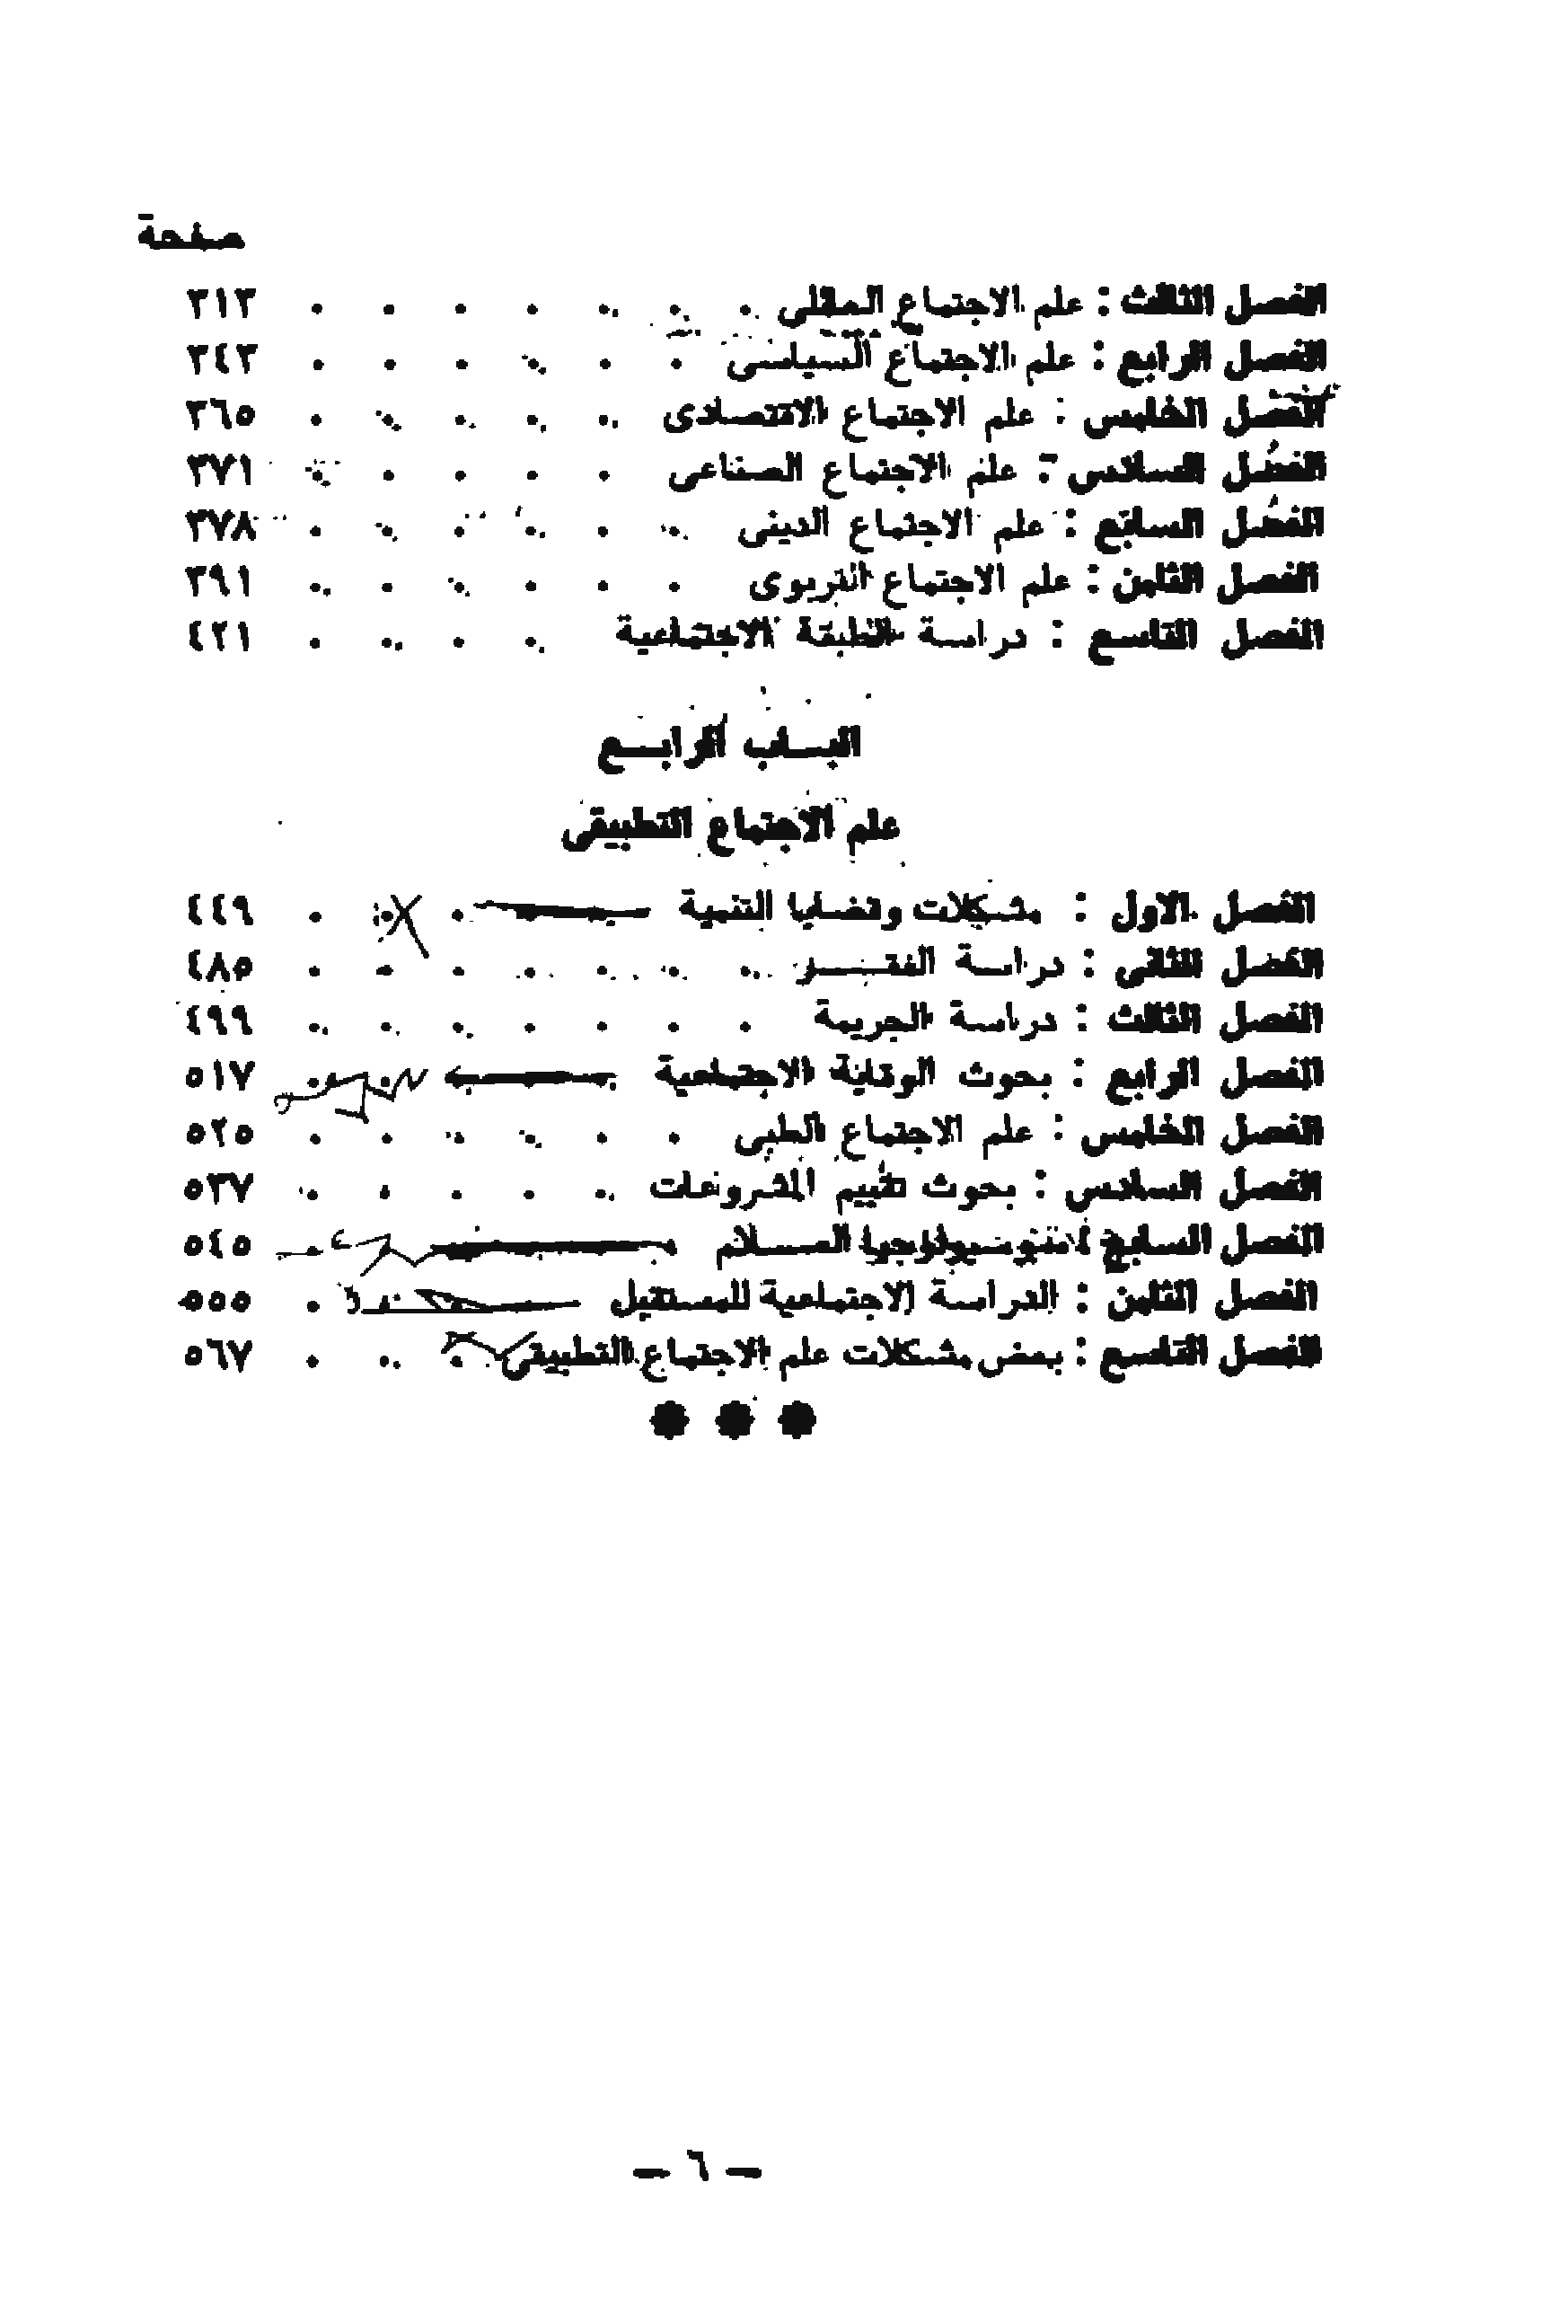 صفحة
الفصل الثالث : علم الاجتماع العائلى . . . . . . . ٣١٣
الفصل الرابع : علم الاجتماع السياسى . . . . . . ٣٤٣
الفصل الخامس : علم الاجتماع الاقتصادى . . . . . ٣٦٥
الفصل السادس : علم الاجتماع الصناعى . . . . . ٣٧١
الفصل السابع : علم الاجتماع الدينى . . . . . . ٣٧٨
الفصل الثامن : علم الاجتماع التربوى . . . . . . ٣٩١
الفصل التاسع : دراسة الطبقة الاجتماعية . . . . ٤٢١
البـــاب الرابـــع
علم الاجتماع التطبيقى
الفصل الاول : مشكلات وقضايا التنمية . . . ٤٤٩
الفصل الثانى : دراسة الفقـــــر . . . . . . . ٤٨٥
الفصل الثالث : دراسة الجريمة . . . . . . . ٤٩٩
الفصل الرابع : بحوث الوقاية الاجتماعية . . ٥١٧
الفصل الخامس : علم الاجتماع الطبى . . . . . . ٥٢٥
الفصل السادس : بحوث تقييم المشروعات . . . . . ٥٣٧
الفصل السابع : سوسيولوجيا الســـلام . . ٥٤٥
الفصل الثامن : الدراسة الاجتماعية للمستقبل . . ٥٥٥
الفصل التاسع : بعض مشكلات علم الاجتماع التطبيقى . . . ٥٦٧
* * *
— ٦ —